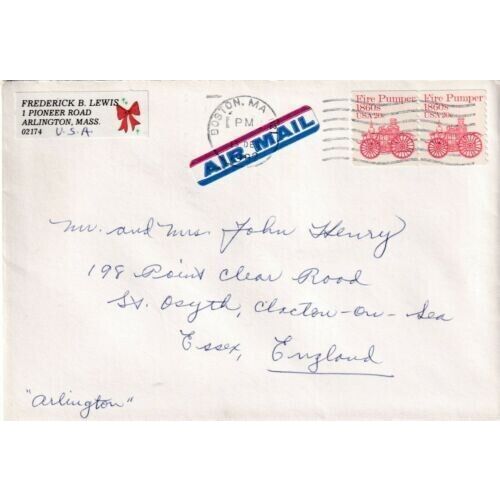 FREDERICK B. LEWIS
1 PIONEER ROAD
ARLINGTON, MASS.
02174 U.S.A.
BOSTON, MA
PM
DE
AIR MAIL
Fire Pumper
1860s
USA 20c
Fire Pumper
1860s
USA 20c
Mr. and Mrs. John Henry
198 Point Clear Road
St. Osyth, Clacton-on-Sea
Essex, England
"Arlington"